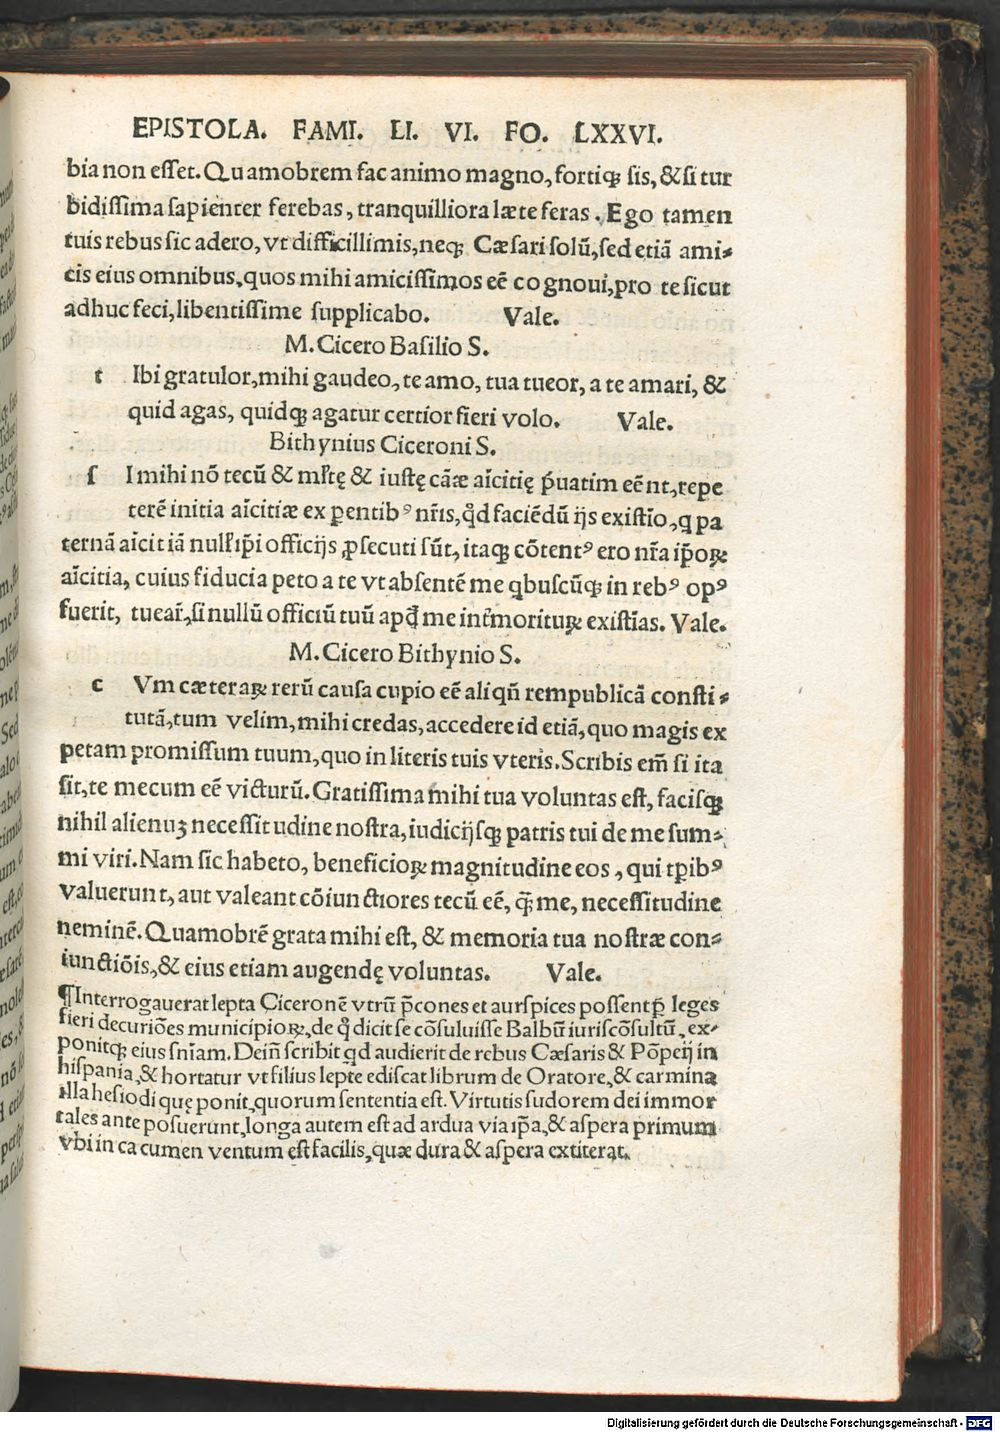 EPISTOLA. FAMI. LI. VI. FO. LXXVI.
bia non eſſet. Quamobrem fac animo magno, fortiqꝫ ſis, & ſi tur
bidiſſima ſapienter ferebas, tranquilliora læte feras. Ego tamen
tuis rebus ſic adero, vt difficillimis, neqꝫ Cæſari ſolū, ſed etiā ami⸗
cis eius omnibus, quos mihi amiciſſimos eē cognoui, pro te ſicut
adhuc feci, libentiſſime ſupplicabo. Vale.
M. Cicero Baſilio S.
t Ibi gratulor, mihi gaudeo, te amo, tua tueor, a te amari, &
quid agas, quidqꝫ agatur certior fieri volo. Vale.
Bithynius Ciceroni S.
ſ I mihi nō tecū & ml̄tę & iuſtę cāæ aīcitię p̄uatim eēnt, repe
terē initia aīcitiæ ex ꝑentibꝰ nr̄is, qd̄ faciēdū ijs exiſtīo, q pa
ternā aīcitiā null̄ ip̄i officijs ꝓſecuti ſūt, itaqꝫ cōtentꝰ ero nr̄a ip̄oꝝ
aīcitia, cuius fiducia peto a te vt abſentē me qbuſcūqꝫ in rebꝰ opꝰ
fuerit, tuear̄, ſi nullū officiū tuū apd̄ me int̄morituꝝ exiſtīas. Vale.
M. Cicero Bithynio S.
c Vm cæteraꝝ rerū cauſa cupio eē aliqn̄ rempublicā conſti⸗
tutā, tum velim, mihi credas, accedere id etiā, quo magis ex
petam promiſſum tuum, quo in literis tuis vteris. Scribis em̄ ſi ita
ſit, te mecum eē victurū. Gratiſſima mihi tua voluntas eſt, faciſqꝫ
nihil alienuꝫ neceſſitudine noſtra, iudicijſqꝫ patris tui de me ſum⸗
mi viri. Nam ſic habeto, beneficioꝝ magnitudine eos, qui tꝑibꝰ
valuerunt, aut valeant cōiunctiores tecū eē, q̄ꝫ me, neceſſitudine
neminē. Quamobrē grata mihi eſt, & memoria tua noſtræ con⸗
iunctiōis, & eius etiam augendę voluntas. Vale.
¶Interrogauerat lepta Ciceronē vtrū p̄cones et aurſpices poſſent ꝑ leges
fieri decuriōes municipioꝝ, de qͦ dicit ſe cōſuluiſſe Balbū iuriſcōſultū, ex⸗
ponitqꝫ eius ſn̄iam. Dein̄ ſcribit qd audierit de rebus Cæſaris & Pōpeij in
hiſpania, & hortatur vt filius lepte ediſcat librum de Oratore, & carmina
illa heſiodi quę ponit, quorum ſententia eſt. Virtutis ſudorem dei immor
tales ante poſuerunt, longa autem eſt ad ardua via ip̄a, & aſpera primum
vbi in cacumen ventum eſt facilis, quæ dura & aſpera extiterat.
Digitalisierung gefördert durch die Deutsche Forschungsgemeinschaft - DFG